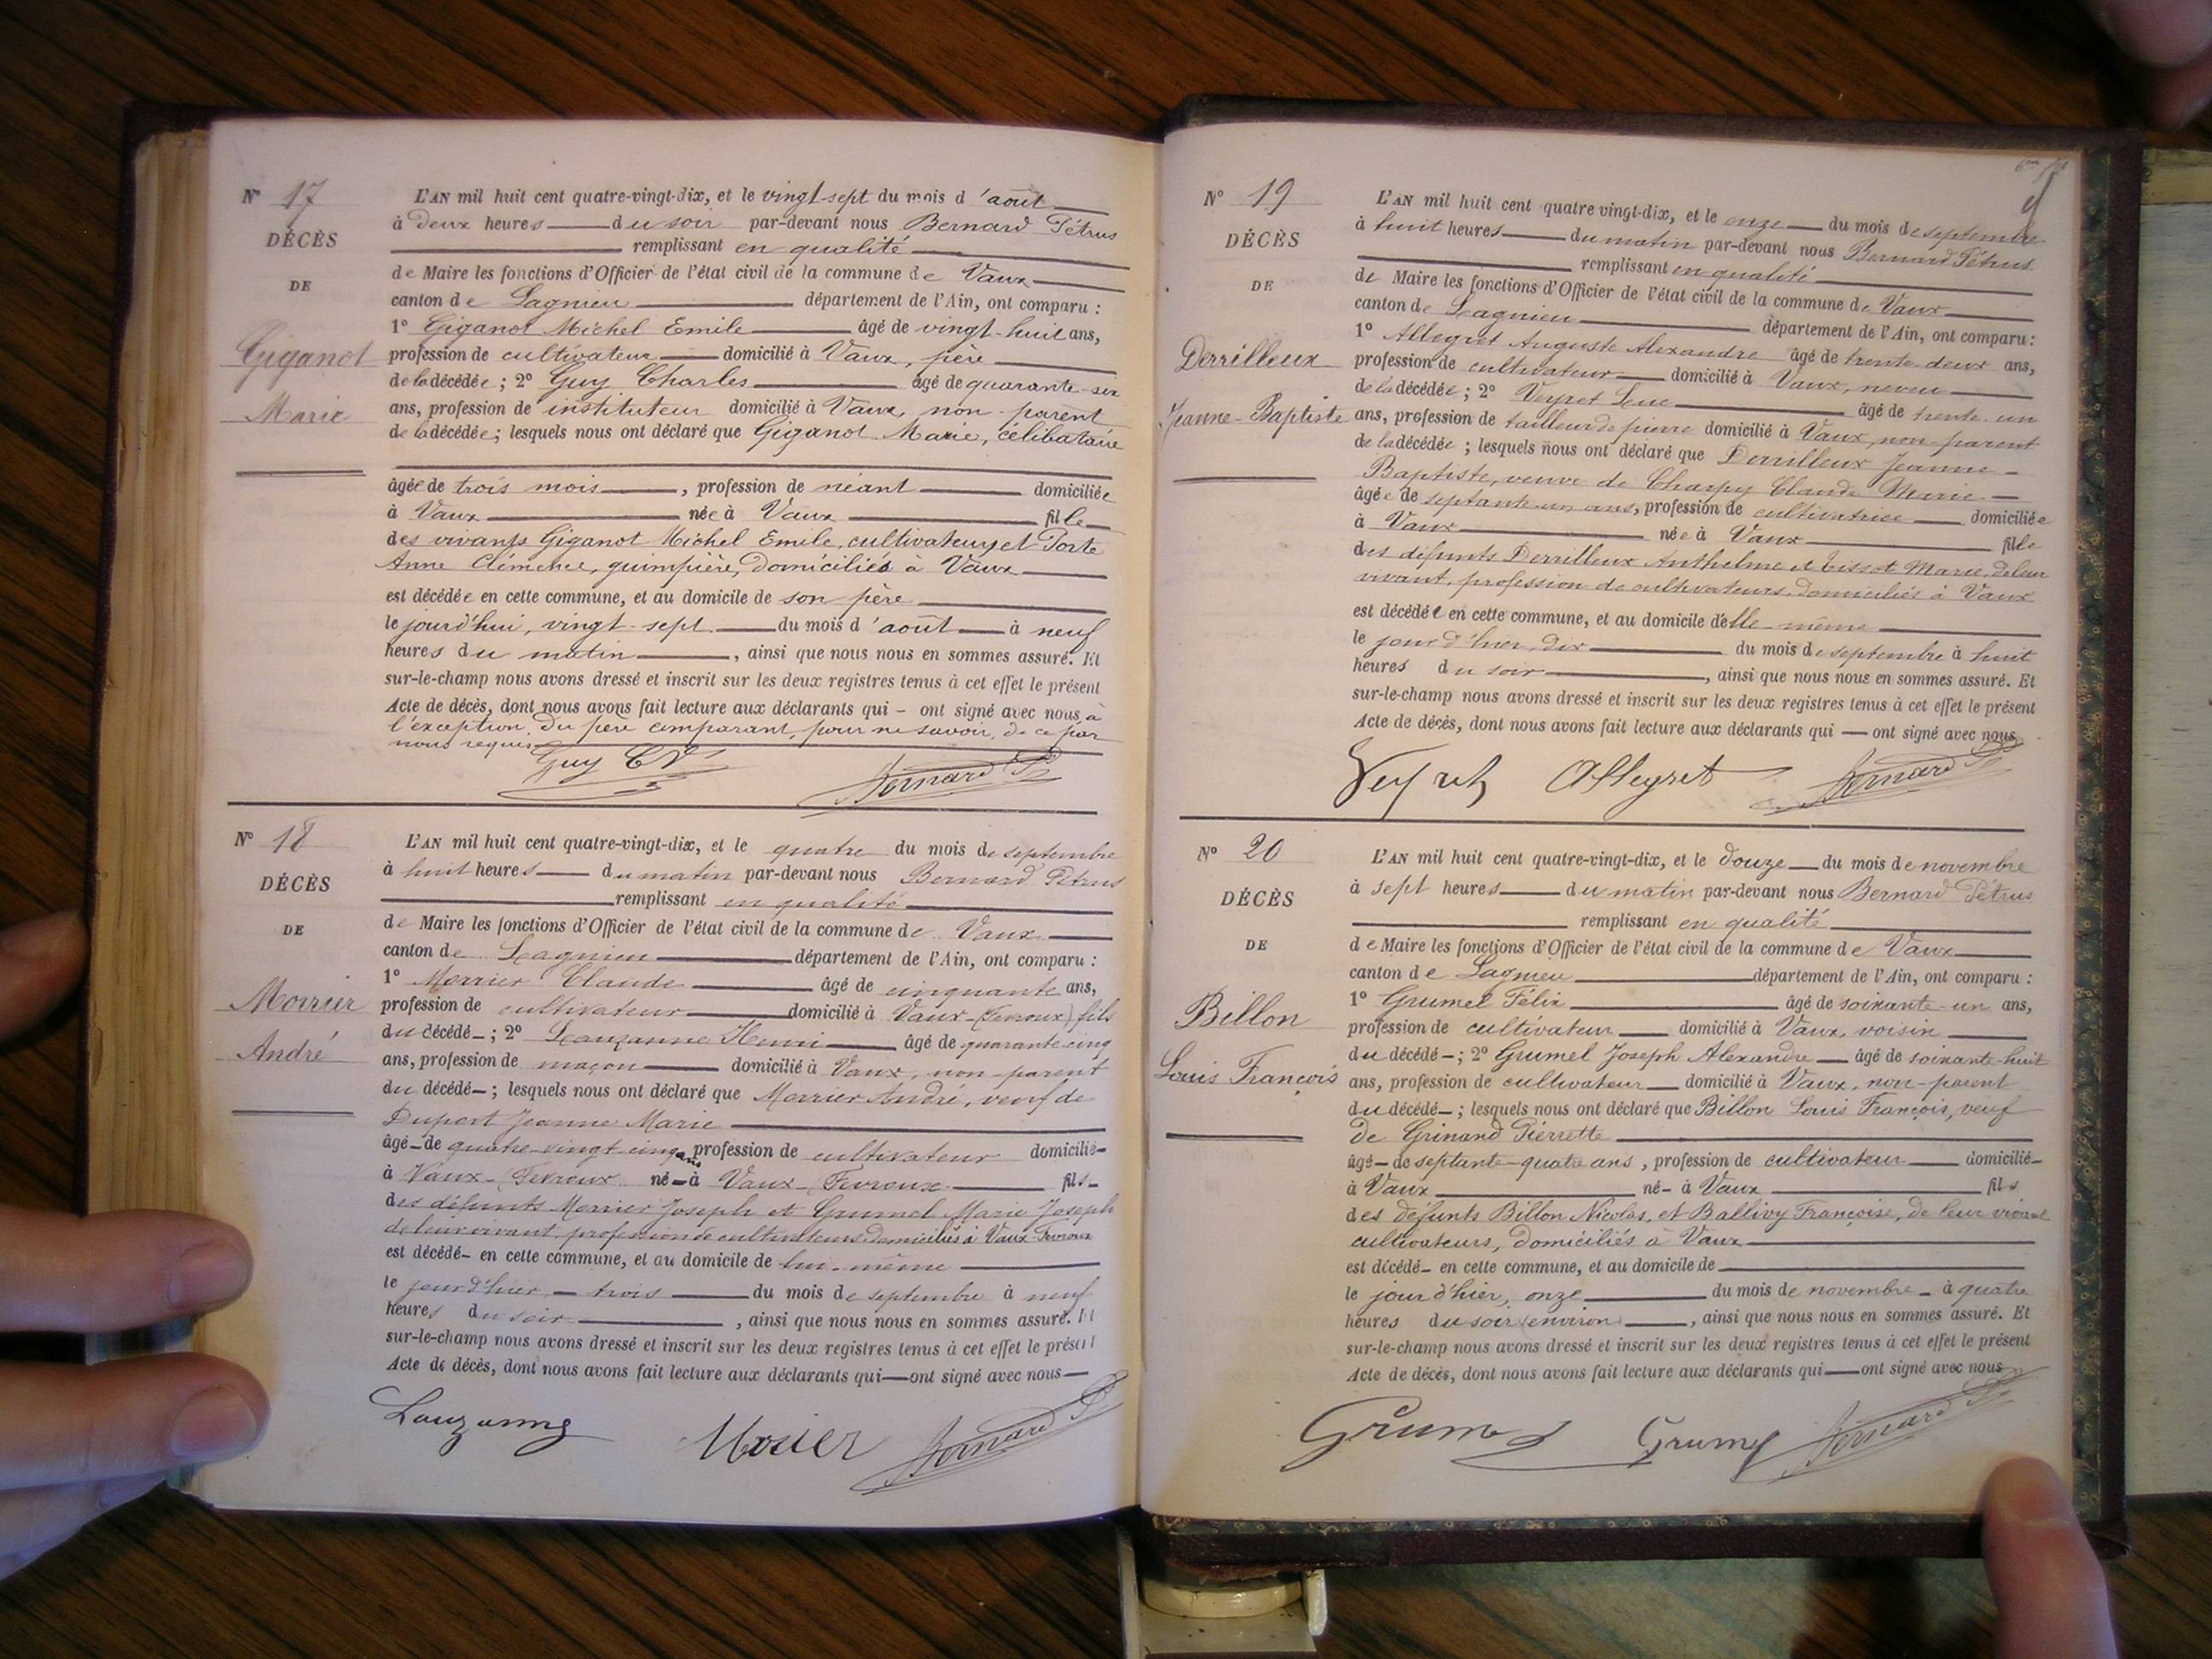 N° 17
DÉCÈS
DE
Giganot
Marie
L'AN mil huit cent quatre-vingt-dix, et le vingt-sept du mois d'août
à deux heures du soir par-devant nous Bernard Pétrus
remplissant en qualité
de Maire les fonctions d'Officier de l'état civil de la commune de Vaux
canton de Lagnieu département de l'Ain, ont comparu :
1° Giganot Michel Emile âgé de vingt-huit ans,
profession de cultivateur domicilié à Vaux, père
de la décédée ; 2° Guy Charles âgé de quarante-six
ans, profession de instituteur domicilié à Vaux, non-parent
de la décédée ; lesquels nous ont déclaré que Giganot Marie, célibataire
âgée de trois mois, profession de néant domiciliée
à Vaux née à Vaux fille
des vivants Giganot Michel Emile, cultivateur, et Porte
Anne Clémence, guimpière, domiciliés à Vaux
est décédée en cette commune, et au domicile de son père
le jourd'hui, vingt-sept du mois d'août à neuf
heures du matin, ainsi que nous nous en sommes assuré. Et
sur-le-champ nous avons dressé et inscrit sur les deux registres tenus à cet effet le présent
Acte de décès, dont nous avons fait lecture aux déclarants qui - ont signé avec nous, à
l'exception du père comparant, pour ne savoir, de ce par
nous requis
Guy Ch Bernard P
N° 18
DÉCÈS
DE
Morrier
André
L'AN mil huit cent quatre-vingt-dix, et le quatre du mois de septembre
à huit heures du matin par-devant nous Bernard Pétrus
remplissant en qualité
de Maire les fonctions d'Officier de l'état civil de la commune de Vaux
canton de Lagnieu département de l'Ain, ont comparu :
1° Morrier Claude âgé de cinquante ans,
profession de cultivateur domicilié à Vaux-(Fevroux) fils
du décédé - ; 2° Lauzanne Henri âgé de quarante-cinq
ans, profession de maçon domicilié à Vaux, non-parent
du décédé - ; lesquels nous ont déclaré que Morrier André, veuf de
Duport Jeanne Marie
âgé - de quatre-vingt-cinq ans profession de cultivateur domicilié -
à Vaux-Fevroux né - à Vaux-Fevroux fils -
des défunts Morrier Joseph et Grumel Marie Joseph
de leur vivant, profession de cultivateurs domiciliés à Vaux-Fevroux
est décédé - en cette commune, et au domicile de lui-même
le jour d'hier - trois du mois de septembre à neuf
heures du soir, ainsi que nous nous en sommes assuré. Et
sur-le-champ nous avons dressé et inscrit sur les deux registres tenus à cet effet le présent
Acte de décès, dont nous avons fait lecture aux déclarants qui — ont signé avec nous —
Lauzanne Morier Bernard P
N° 19
DÉCÈS
DE
Derrilleux
Jeanne-Baptiste
L'AN mil huit cent quatre vingt-dix, et le onze du mois de septembre
à huit heures du matin par-devant nous Bernard Pétrus
remplissant en qualité
de Maire les fonctions d'Officier de l'état civil de la commune de Vaux
canton de Lagnieu département de l'Ain, ont comparu :
1° Allegret Auguste Alexandre âgé de trente-deux ans,
profession de cultivateur domicilié à Vaux, neveu
de la décédée ; 2° Veyret Luc âgé de trente-un
ans, profession de tailleur de pierre domicilié à Vaux, non-parent
de la décédée ; lesquels nous ont déclaré que Derrilleux Jeanne-
Baptiste, veuve de Charpy Claude Marie
âgée de septante-un ans, profession de cultivatrice domiciliée
à Vaux née à Vaux fille
des défunts Derrilleux Anthelme et Tissot Marie, de leur
vivant, profession de cultivateurs, domiciliés à Vaux
est décédée en cette commune, et au domicile d'elle-même
le jour d'hier, dix du mois de septembre à huit
heures du soir, ainsi que nous nous en sommes assuré. Et
sur-le-champ nous avons dressé et inscrit sur les deux registres tenus à cet effet le présent
Acte de décès, dont nous avons fait lecture aux déclarants qui — ont signé avec nous
Veyret Allegret Bernard P
N° 20
DÉCÈS
DE
Billon
Louis François
L'AN mil huit cent quatre-vingt-dix, et le douze du mois de novembre
à sept heures du matin par-devant nous Bernard Pétrus
remplissant en qualité
de Maire les fonctions d'Officier de l'état civil de la commune de Vaux
canton de Lagnieu département de l'Ain, ont comparu :
1° Grumel Félix âgé de soixante-un ans,
profession de cultivateur domicilié à Vaux, voisin
du décédé - ; 2° Grumel Joseph Alexandre âgé de soixante-huit
ans, profession de cultivateur domicilié à Vaux, non-parent
du décédé - ; lesquels nous ont déclaré que Billon Louis François, veuf
de Grinand Pierrette
âgé - de septante-quatre ans, profession de cultivateur domicilié -
à Vaux né - à Vaux fils
des défunts Billon Nicolas, et Ballivy Françoise, de leur vivant
cultivateurs, domiciliés à Vaux
est décédé - en cette commune, et au domicile de
le jour d'hier, onze du mois de novembre - à quatre
heures du soir (environ), ainsi que nous nous en sommes assuré. Et
sur-le-champ nous avons dressé et inscrit sur les deux registres tenus à cet effet le présent
Acte de décès, dont nous avons fait lecture aux déclarants qui — ont signé avec nous
Grumel Grumel Bernard P